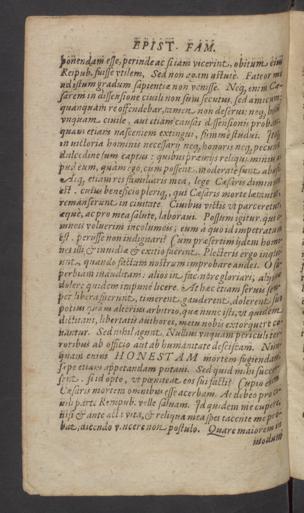 EPIST. FAM.
ponendam esse, perinde ac si iam vicerint, obitum eius
Reipub. fuisse vtilem. Sed non agam astutè. Fateor me
ad istum gradum sapientiæ non venisse. Neq; enim Cæ-
sarem in dissensione ciuili sum secutus, sed amicum:
quanquam re offendebar, tamen non deserui: neq; bellum
vnquam ciuile, aut etiam causam dissensionis probaui,
quam etiam nascentem extingui, summè studui. Itaq;
in victoria hominis necessarij neq; honoris neq; pecuniæ
dulcedine sum captus: quibus præmijs reliqui, minus
apud eum, quàm ego, cùm possent, immoderatè sunt abusi.
Atq; etiam res familiaris mea, lege Cæsaris diminuta
est: cuius beneficio pleriq; qui Cæsaris morte lætantur,
remanserunt in ciuitate. Ciuibus victis vt parceretur,
æquè, ac pro mea salute, laboraui. Possum igitur, qui o-
mneis voluerim incolumeis; eum, à quo id impetratum
est, perisse non indignari? Cum præsertim ijdem homi-
nes illi & inuidiæ & exitio fuerint. Plecteris ergo, inqui-
unt, quando factum nostrum improbare audes. O su-
perbiam inauditam: alios in facinore gloriari, alijs ne
dolere quidem impunè licere. At hæc etiam seruis sem-
per libera fuerunt, timerent, gauderent, dolerent, suo
potius quàm alterius arbitrio, quæ nunc isti, vt quidem
dictitant, libertatis authores, metu nobis extorquere co-
nantur. Sed nihil agunt. Nullius vnquam periculi ter-
roribus ab officio aut ab humanitate desciscam. Nun-
quam enim HONESTAM mortem fugiendam,
sæpe etiam appetendam putaui. Sed quid mihi succen-
sent, si id opto, vt pœniteat eos sui facti? Cupio enim
Cæsaris mortem omnibus esse acerbam. At debeo pro ci-
uili parte Rempub. velle saluam. Id quidem me cupere,
nisi & ante acta vita, & reliqua mea spes tacente me pro-
bat, dicendo vincere non postulo. Quare maiorem in
modum